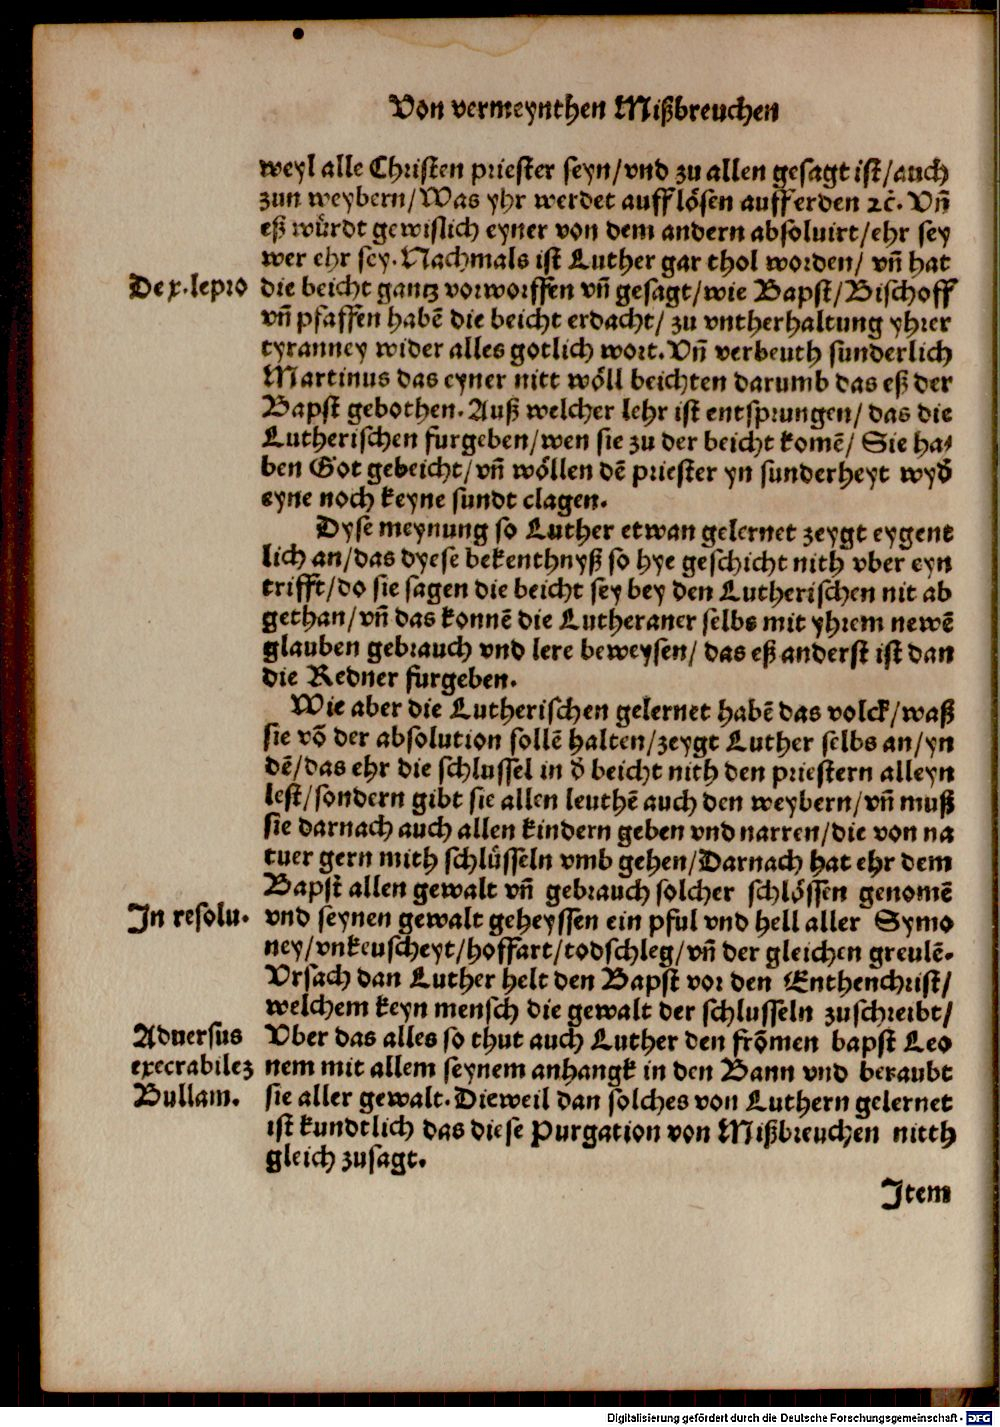 Von vermeynthen Mißbreuchen
weyl alle Christen priester seyn/vnd zu allen gesagt ist/auch
zun weybern/Was yhr werdet aufflösen aufferden ⁊c̄. Vñ
eß würdt gewislich eyner von dem andern absoluirt/ehr sey
wer ehr sey. Nachmals ist Luther gar thol worden/ vñ hat
De x. lepro
die beicht gantz vorworffen vñ gesagt/wie Bapst/Bischoff
vñ pfaffen habē die beicht erdacht/ zu vntherhaltung yhrer
tyranney wider alles gotlich wort. Vñ verbeuth sunderlich
Martinus das eyner nitt wöll beichten darumb das eß der
Bapst gebothen. Auß welcher lehr ist entsprungen/ das die
Lutherischen furgeben/wen sie zu der beicht komē/ Sie ha⸗
ben Got gebeicht/vñ wöllen dē priester yn sunderheyt wyd̄
eyne noch keyne sundt clagen.
Dyse meynung so Luther etwan gelernet zeygt eygent
lich an/das dyese bekenthnyß so hye geschicht nith vber eyn
trifft/do sie sagen die beicht sey bey den Lutherischen nit ab
gethan/vñ das konnē die Lutheraner selbs mit yhrem newē
glauben gebrauch vnd lere beweysen/ das eß anderst ist dan
die Redner furgeben.
Wie aber die Lutherischen gelernet habē das volck/waß
sie vō der absolution sollē halten/zeygt Luther selbs an/yn
dē/das ehr die schlussel in d̄ beicht nith den priestern alleyn
lest/sondern gibt sie allen leuthē auch den weybern/vñ muß
sie darnach auch allen kindern geben vnd narren/die von na
tuer gern mith schlüsseln vmb gehen/Darnach hat ehr dem
Bapst allen gewalt vñ gebrauch solcher schlössen genomē
In resolu.
vnd seynen gewalt geheyssen ein pful vnd hell aller Symo
ney/vnkeuscheyt/hoffart/todschleg/vñ der gleichen greulē.
Vrsach dan Luther helt den Bapst vor den Enthenchrist/
welchem keyn mensch die gewalt der schlusseln zuschreibt/
Aduersus
execrabilez
Bullam.
Vber das alles so thut auch Luther den frōmen bapst Leo
nem mit allem seynem anhangk in den Bann vnd beraubt
sie aller gewalt. Dieweil dan solches von Luthern gelernet
ist kundtlich das diese Purgation von Mißbreuchen nitth
gleich zusagt.
Item
Digitalisierung gefördert durch die Deutsche Forschungsgemeinschaft - DFG